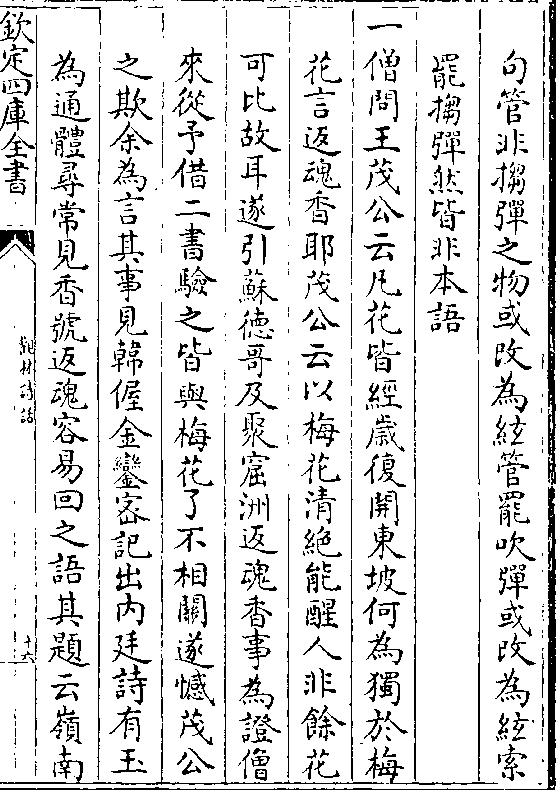 句管非搊彈之物或改為絃管罷吹彈或改為絃索
罷搊彈然皆非本語
一僧問王茂公云凡花皆經歲復開東坡何為獨於梅
花言返魂香耶茂公云以梅花清絶能醒人非餘花
可比故耳遂引蘇德哥及聚窟洲返魂香事為證僧
來從予借二書驗之皆與梅花了不相關遂憾茂公
之欺余為言其事見韓偓金鑾宻記出内廷詩有玉
為通體尋常見香號返魂容易回之語其題云嶺南
欽定四庫全書
詩話
十六